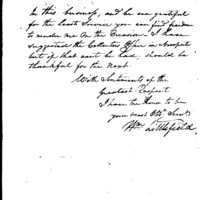 In this business, and be am grateful
for the least service you can find freedom
to render me on the Occasion. I have
suggested the Collectors Office in Newport
but if that cant be had, should be
thankful for the next.
With Sentiments of the
Greatest Respect
I have the Honor to be
your most Obt. Servt
Wm Littlefield